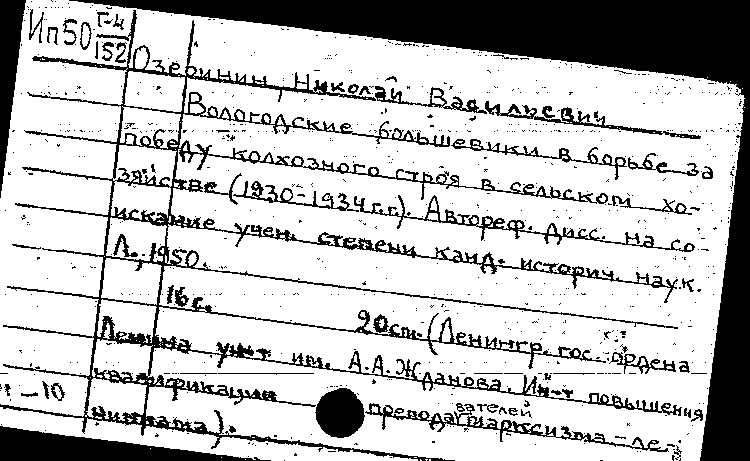 Ип50 Г-4
152
Озеринин, Николай Васильевич
Вологодские большевики в борьбе за
победу колхозного строя в сельском хо-
зяйстве (1930-1934 г.г.). Автореф. дисс. на со-
искание учен. степени канд. историч. наук.
Л., 1950.
16 с. 20 см. (Ленингр. гос. ордена
Ленина ун-т им. А.А. Жданова. Ин-т повышения
квалификации преподавателей марксизма-ле-
нинизма).
-10